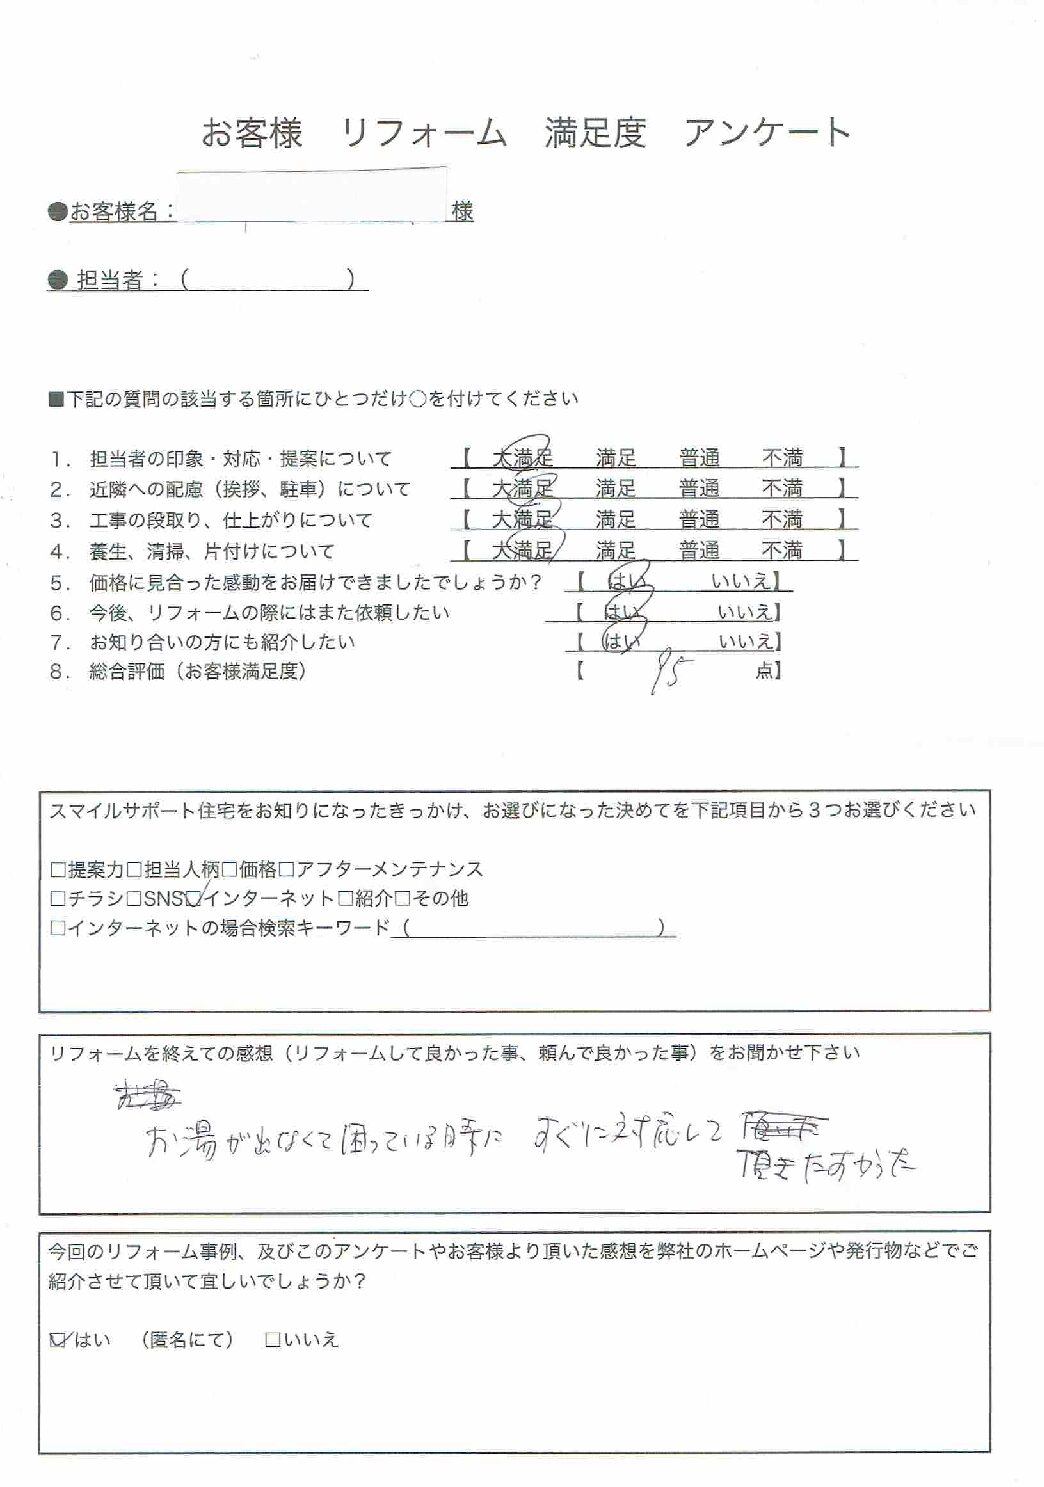 お客様　リフォーム　満足度　アンケート
●お客様名：　　　　　　様
●担当者：（　　　　　　）
■下記の質問の該当する箇所にひとつだけ○を付けてください
1．担当者の印象・対応・提案について　【　大満足　満足　普通　不満　】
2．近隣への配慮（挨拶、駐車）について　【　大満足　満足　普通　不満　】
3．工事の段取り、仕上がりについて　【　大満足　満足　普通　不満　】
4．養生、清掃、片付けについて　【　大満足　満足　普通　不満　】
5．価格に見合った感動をお届けできましたでしょうか？　【　はい　いいえ】
6．今後、リフォームの際にはまた依頼したい　【　はい　いいえ】
7．お知り合いの方にも紹介したい　【　はい　いいえ】
8．総合評価（お客様満足度）　【　95　点】
スマイルサポート住宅をお知りになったきっかけ、お選びになった決めてを下記項目から３つお選びください
□提案力□担当人柄□価格□アフターメンテナンス
□チラシ□SNS☑インターネット□紹介□その他
□インターネットの場合検索キーワード（　　　　　　）
リフォームを終えての感想（リフォームして良かった事、頼んで良かった事）をお聞かせ下さい
お湯が出なくて困っている時に　すぐに対応して
頂きたすかった
今回のリフォーム事例、及びこのアンケートやお客様より頂いた感想を弊社のホームページや発行物などでご
紹介させて頂いて宜しいでしょうか？
☑はい　（匿名にて）　□いいえ